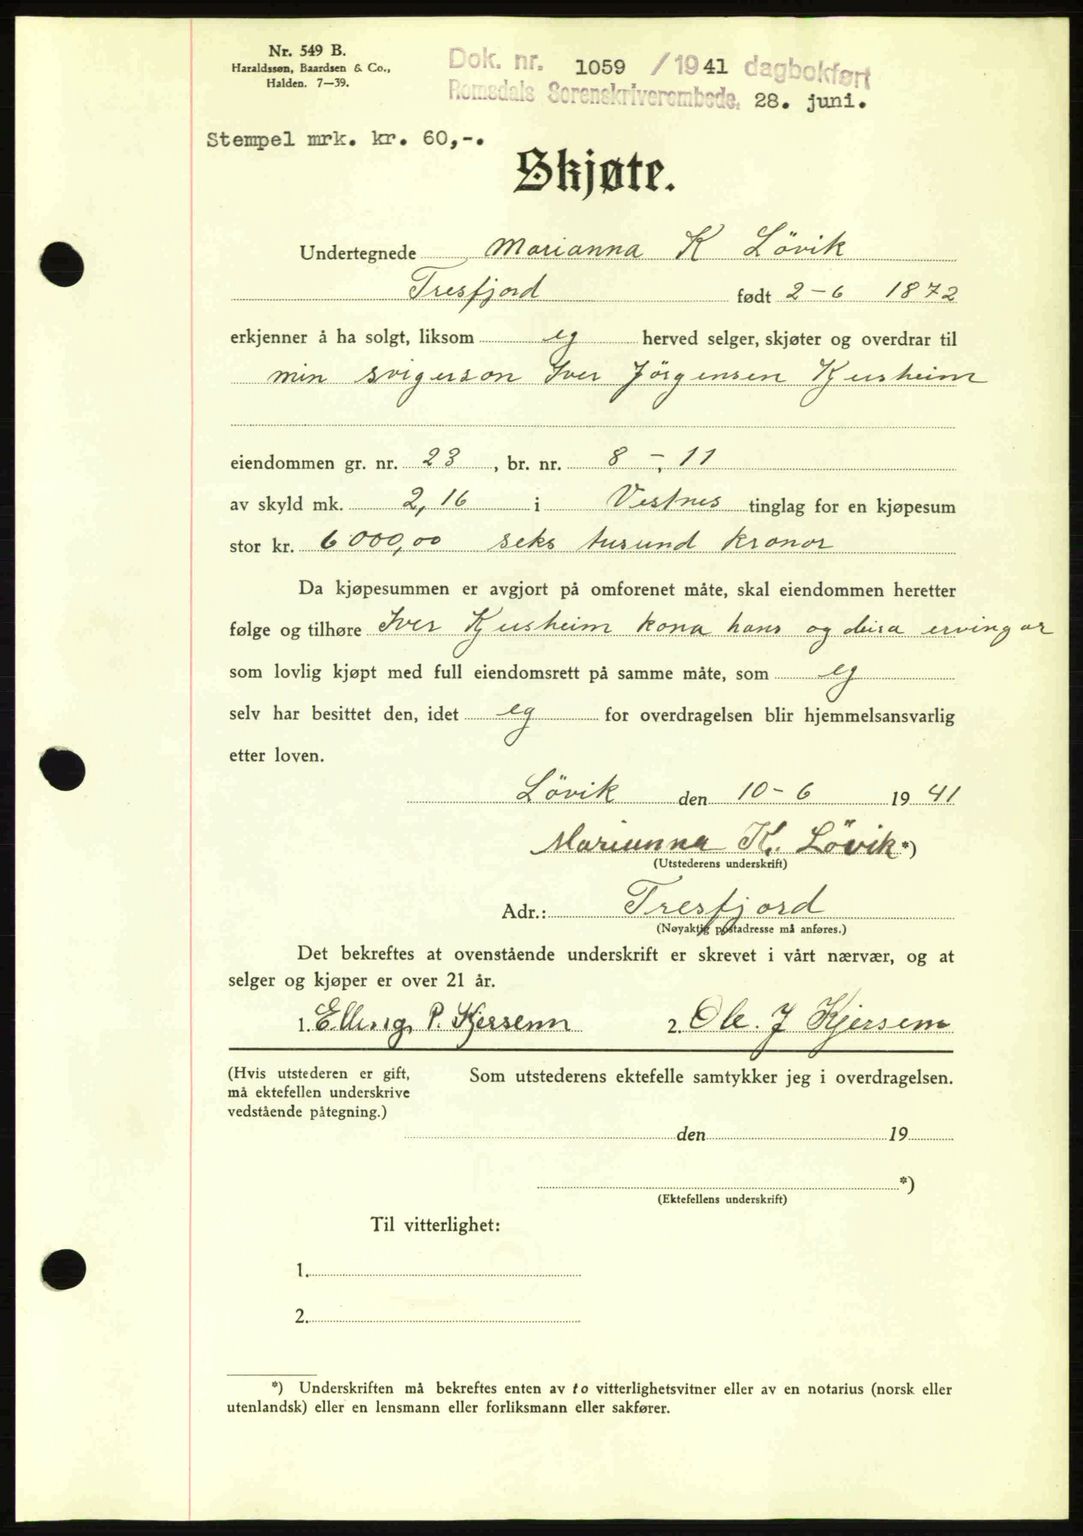 Nr. 549 B.
Haraldssøn, Baardsen & Co.,
Halden. 7—39.
Dok. nr. 1059 /1941 dagbokført
Romsdals Sorenskriverembede, 28. juni.
Stempel mrk. kr. 60,-.
Skjøte.
Undertegnede Marianna K Lövik
Tresfjord født 2-6 1872
erkjenner å ha solgt, liksom eg herved selger, skjøter og overdrar til
min svigerson Iver Jörgensen Kjersheim
eiendommen gr. nr. 23, br. nr. 8 -, 11
av skyld mk. 2,16 i Vestnes tinglag for en kjøpesum
stor kr. 6000,00 seks tusund kronor
Da kjøpesummen er avgjort på omforenet måte, skal eiendommen heretter
følge og tilhøre Iver Kjersheim kona hans og deira ervingar
som lovlig kjøpt med full eiendomsrett på samme måte, som eg
selv har besittet den, idet eg for overdragelsen blir hjemmelsansvarlig
etter loven.
Lövik den 10-6 1941
Marianna K. Lövik *)
(Utstederens underskrift)
Adr.: Tresfjord
(Nøyaktig postadresse må anføres.)
Det bekreftes at ovenstående underskrift er skrevet i vårt nærvær, og at
selger og kjøper er over 21 år.
1. Elling P. Kjersem 2. Ole. J Kjersem
(Hvis utstederen er gift, Som utstederens ektefelle samtykker jeg i overdragelsen.
må ektefellen underskrive
vedstående påtegning.)
den 19
*)
(Ektefellens underskrift)
Til vitterlighet:
1.
2.
*) Underskriften må bekreftes enten av to vitterlighetsvitner eller av en notarius (norsk eller
utenlandsk) eller en lensmann eller forliksmann eller sakfører.